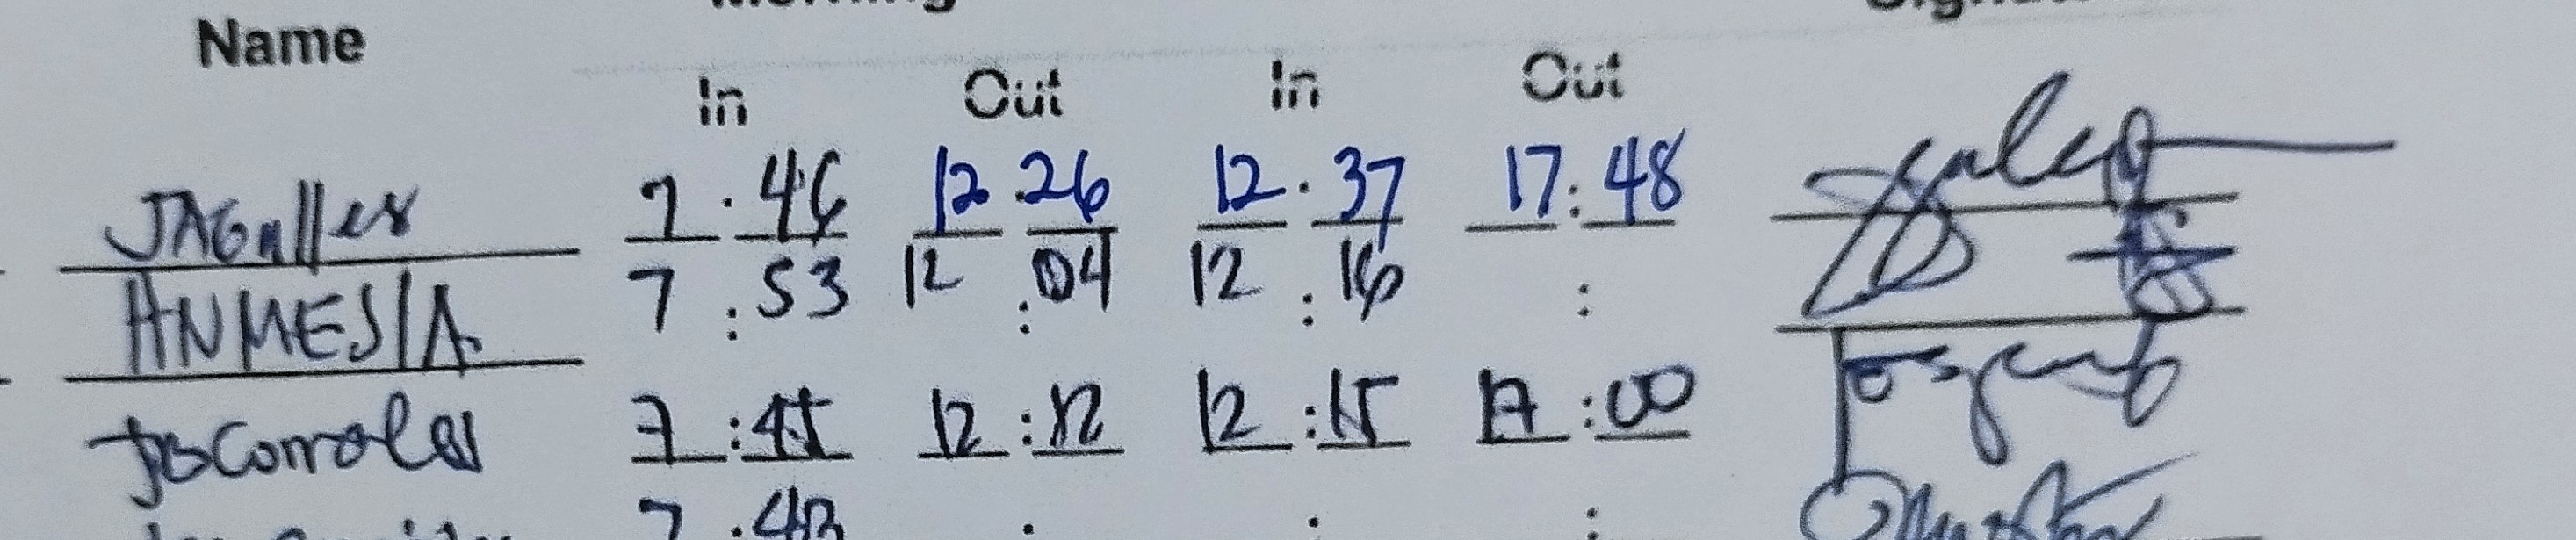 Name In Out In Out
JAGalles 7:46 12:26 12:37 17:48
ANMESIA 7:53 12:04 12:16 :
JBCorrales 7:45 12:12 12:15 17:00
7:43 : : :